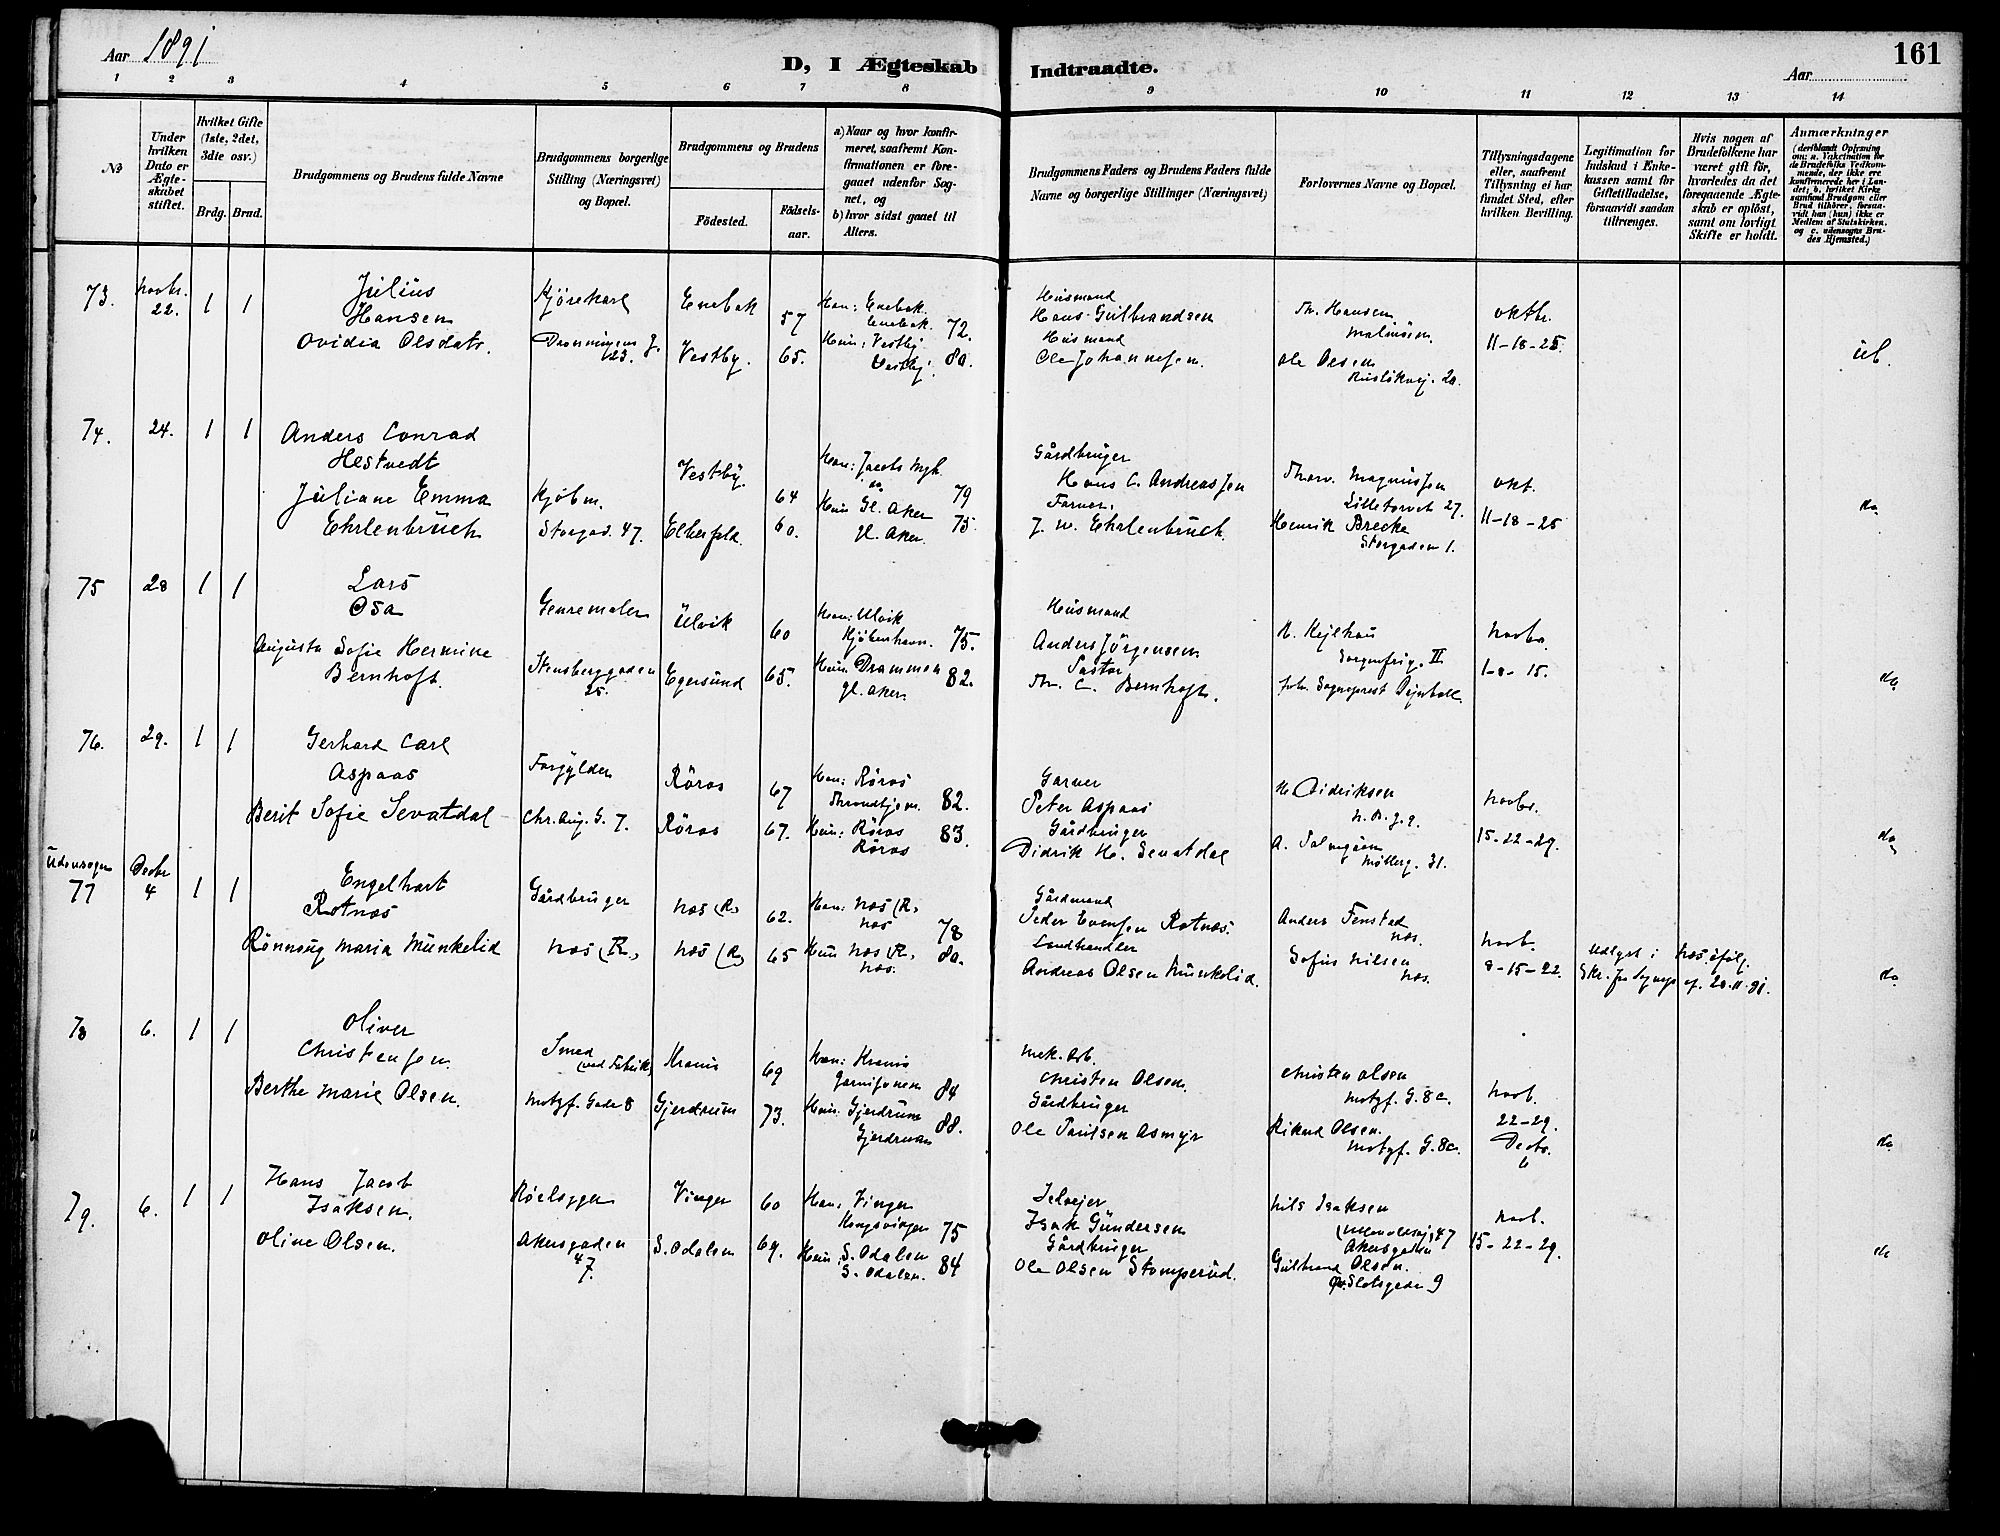 Aar 1891
D, I Ægteskab Indtraadte.
Aar
161
1 2 3 4 5 6 7 8 9 10 11 12 13 14
No
Under hvilken Dato er Ægteskabet stiftet.
Hvilket Gifte (1ste, 2det, 3die osv.)
Brdg. Brud.
Brudgommens og Brudens fulde Navne
Brudgommens borgerlige Stilling (Næringsvei) og Bopæl.
Brudgommens og Brudens
Födested.
Födselsaar.
a) Naar og hvor konfirmeret, saafremt Konfirmationen er foregaaet udenfor Sognet, og
b) hvor sidst gaaet til Alters.
Brudgommens Faders og Brudens Faders fulde Navne og borgerlige Stillinger (Næringsvei)
Forlovernes Navne og Bopæl.
Tillysningsdagene eller, saafremt Tillysning ei har fundet Sted, efter hvilken Bevilling.
Legitimation for Indskud i Enkekassen samt for Giftetilladelse, forsaavidt saadan tiltrænges.
Hvis nogen af Brudefolkene har været gift för, hvorledes da det foregaaende Ægteskab er oplöst, samt om lovligt Skifte er holdt.
Anmærkninger (deriblandt Oplysning om: a. Vaccination for de Brudefolks Vedkommende, der ikke ere konfirmerede her i Landet; b. hvilket Kirkesamfund Brudgom eller Brud tilhörer, forsaavidt han (hun) ikke er Medlem af Statskirken, og c. udensogns Brudes Hjemsted.)
73. Novbr. 22. 1 1
Julius
Hansen
Ovidia Olsdatr.
Kjörekarl
Dronningens G. 23.
Enebak 57
Vestby. 65.
Han: Enebak.
Enebak. 72.
Hun: Vestby
Vestby. 80.
Husmand
Hans Gulbrandsen
Husmand
Ole Johannesen.
Th. Hansen
Ole Olsen
20.
Oktbr.
11-18-25.
ub.
74. 24. 1 1
Anders Conrad
Hestvedt
Juliane Emma
Ehrlenbruch
Kjöbm.
Storgad. 47.
Vestby. 64
Elberfeld. 60.
Han: Jacobs Mgh.
do 79
Hun Gl. Aker
gl. Aker. 75.
Gårdbruger
Hans C. Andreassen
Farver.
J. W. Ehrlenbruch.
Thorv. Magnussen
Lilletorvet 27.
Henrik Brecke
Storgaden 1.
Okt.
11-18-25
do
75 28 1 1
Lars
Osa
Augusta Sofie Hermine
Bernhoft.
Genremaler
Stensberggaden 25.
Ulvik 60
Egersund 65.
Han: Ulvik
Kjöbenhavn. 75.
Hun: Drammen
gl. Aker. 82.
Husmand
Anders Jörgensen
Pastor
Th. C. Bernhoft.
H. Kejlhau
Sorgenfrig. II
Sogneprest
Novbr.
1-8-15.
do
76. 29. 1 1
Gerhard Carl
Aspaas
Berit Sofie Sevatdal
Forgylder
Chr. Aug. G. 7.
Röros 67
Röros 67.
Han: Röros
Throndhjem. 82.
Hun: Röros
Röros 83.
Garver
Peter Aspaas
Gårdbruger
Didrik H. Sevatdal
H. Didriksen
A.
Möllerg. 31.
Novbr.
15-22-29.
do
Udensogns
77 Decbr 4 1 1
Engelhart
Rotnæs
Rönnaug Maria Munkelid
Gårdbruger
Næs (R.)
Næs (R.) 62.
Næs (R.) 65
Han: Næs (R.)
Næs 78
Hun Næs (R.)
Næs. 80.
Gårdmand
Peder Evensen Rotnæs.
Landhandler
Andreas Olsen Munkelid.
Anders Fenstad
Næs.
Sofus Nilsen
Næs.
Novb.
8-15-22.
Udlyst i Næs ifölg.
Skr. fra Sognepr. af 20.11.91.
do
78 6. 1 1
Oliver
Christensen.
Berthe Marie Olsen.
Smed
(ved Fabrik)
Motzf. Gade 8
Hranis 69
Gjerdrum 73.
Han: Hranis
Garnisonen 84
Hun: Gjerdrum
Gjerdrum 88.
Mek. Arb.
Christen Olsen.
Gårdbruger
Ole Paulsen Asmyr
Christen Olsen
Motzf. G. 8c.
Rikard Olsen.
Motzf. G. 8c.
Novb.
22-29.
Decbr.
6
do
79. 6. 1 1
Hans Jacob
Isaksen.
Oline Olsen.
Akersgaden
47.
Vinger 60
S. Odalen 69.
Han: Vinger
Kongsvinger 75
Hun: S. Odalen
S. Odalen. 84
Selvejer
Isak Gundersen
Gårdbruger
Ole Olsen Stomperud.
Nils Isaksen
47
Akersgaden
Gulbrand Olsen.
Slotsgade 9
Novb.
15-22-29.
do